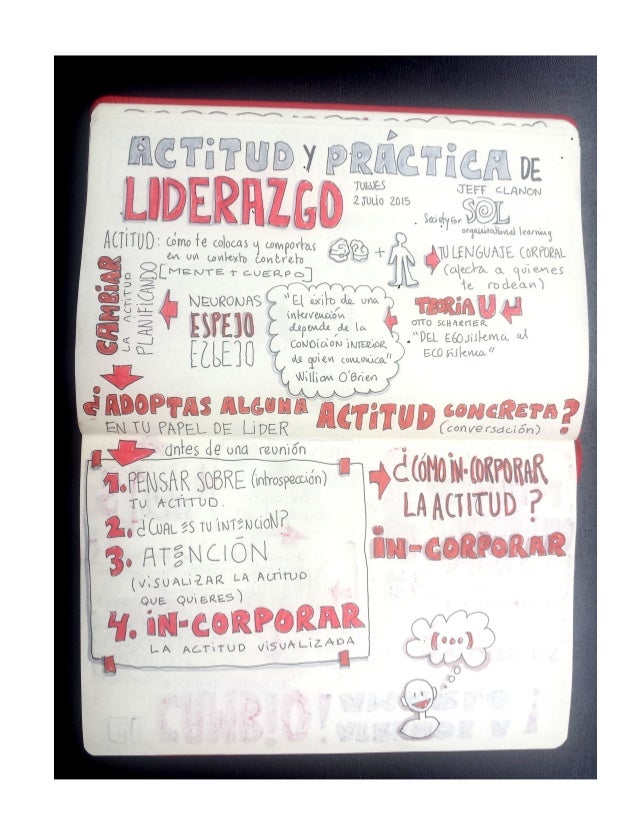 ACTITUD Y PRÁCTICA DE
LIDERAZGO
JUEVES
2 Julio 2015
JEFF CLANON
Society for SOL
organizational learning
ACTITUD: cómo te colocas y comportas
en un contexto concreto
[MENTE + CUERPO]
+
TU LENGUAJE CORPORAL
(afecta a quienes
te rodean)
TEORIA U
OTTO SCHARMER
"DEL EGOsistema al
ECOsistema"
"El éxito de una
intervención
depende de la
CONDICION INTERIOR
de quien comunica"
William O'Brien
NEURONAS
ESPEJO
ESPEJO
CAMBIAR
LA ACTITUD
PLANIFICANDO
¿ADOPTAS ALGUNA ACTITUD CONCRETA?
EN TU PAPEL DE LiDER (conversación)
antes de una reunión
1. PENSAR SOBRE (introspección)
TU ACTITUD.
2. ¿CUAL ES TU INTENCIÓN?
3. ATENCIÓN
(VISUALIZAR LA ACTITUD
QUE QUIERES)
4. IN-CORPORAR
LA ACTITUD VISUALIZADA
¿CÓMO IN-CORPORAR
LA ACTITUD?
IN-CORPORAR
(...)
CAMBIO!